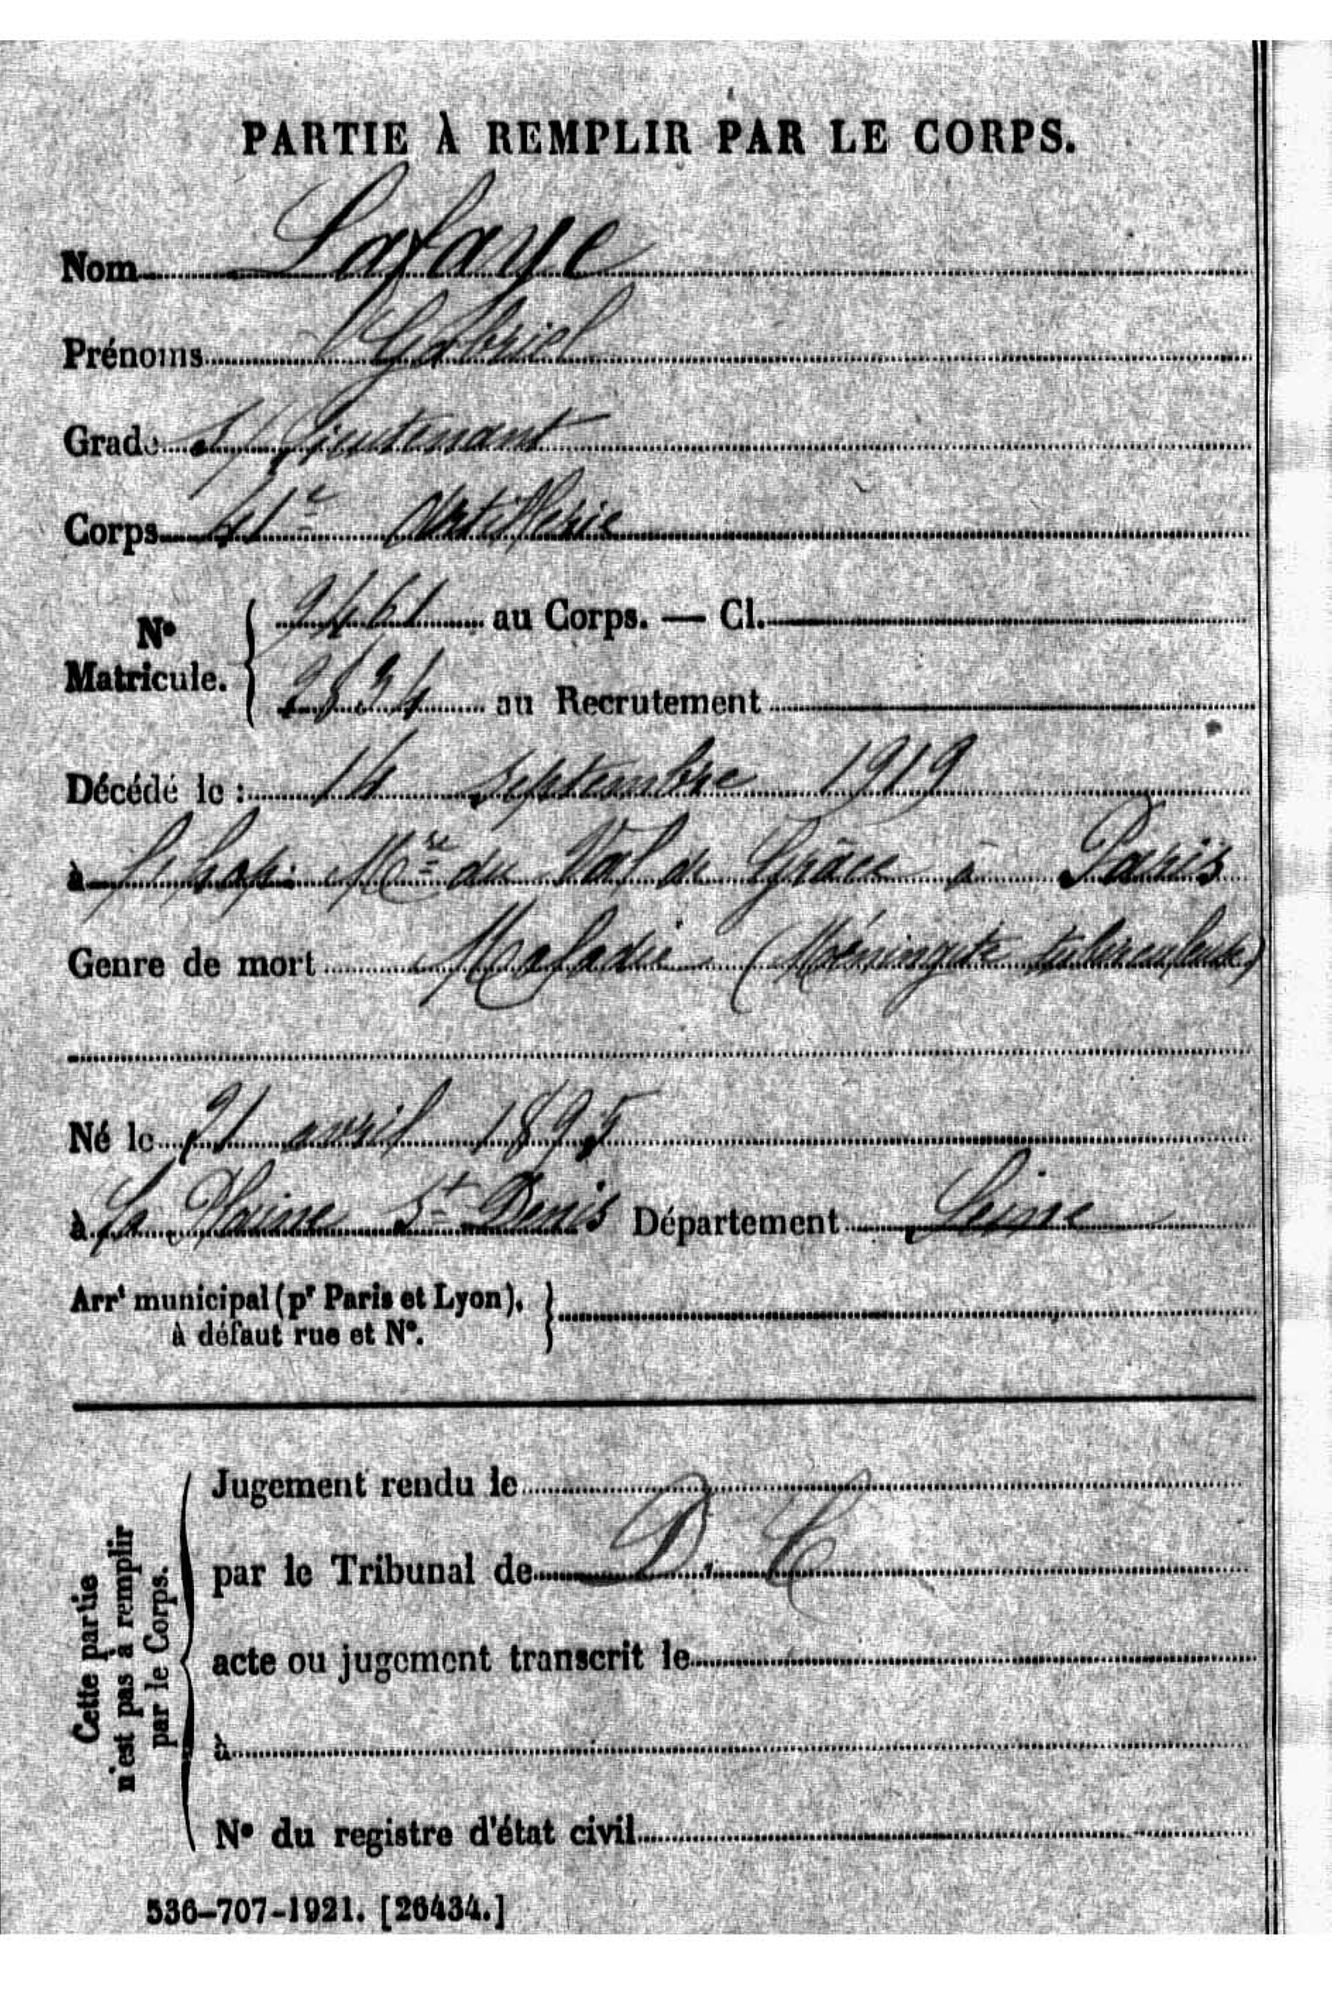 PARTIE À REMPLIR PAR LE CORPS.
Nom Lafaye
Prénoms Gabriel
Grade S/Lieutenant
Corps 41e Artillerie
No Matricule. { 9461 au Corps. — Cl.
2834 au Recrutement
Décédé le : 14 septembre 1919
à l'hop: Mre du Val de Grâce à Paris
Genre de mort Maladie (Méningite tuberculeuse)
Né le 21 avril 1895
à La Plaine St Denis Département Seine
Arrt municipal (pr Paris et Lyon), }
à défaut rue et No.
Cette partie
n'est pas à remplir
par le Corps.
Jugement rendu le
par le Tribunal de D. C
acte ou jugement transcrit le
à
No du registre d'état civil
536-707-1921. [26434.]